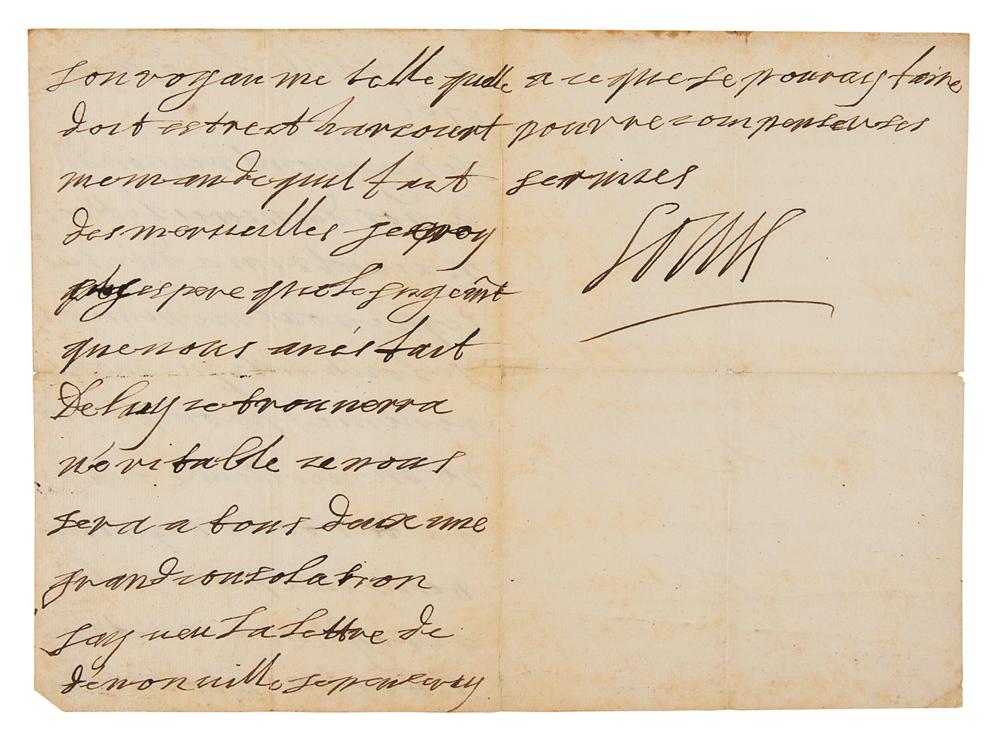 son royaume telle quelle
doit estre et harcourt
me mande quil fait
des merveilles je croy
espere que le jugemt
que nous avés fait
De luy ce trouverra
véritable ce nous
sera a tous deux une
grand consolation
jay veu la lettre de
dénonville je penseray
a ce que je pouray faire
pour recompenser ses
services
Louis